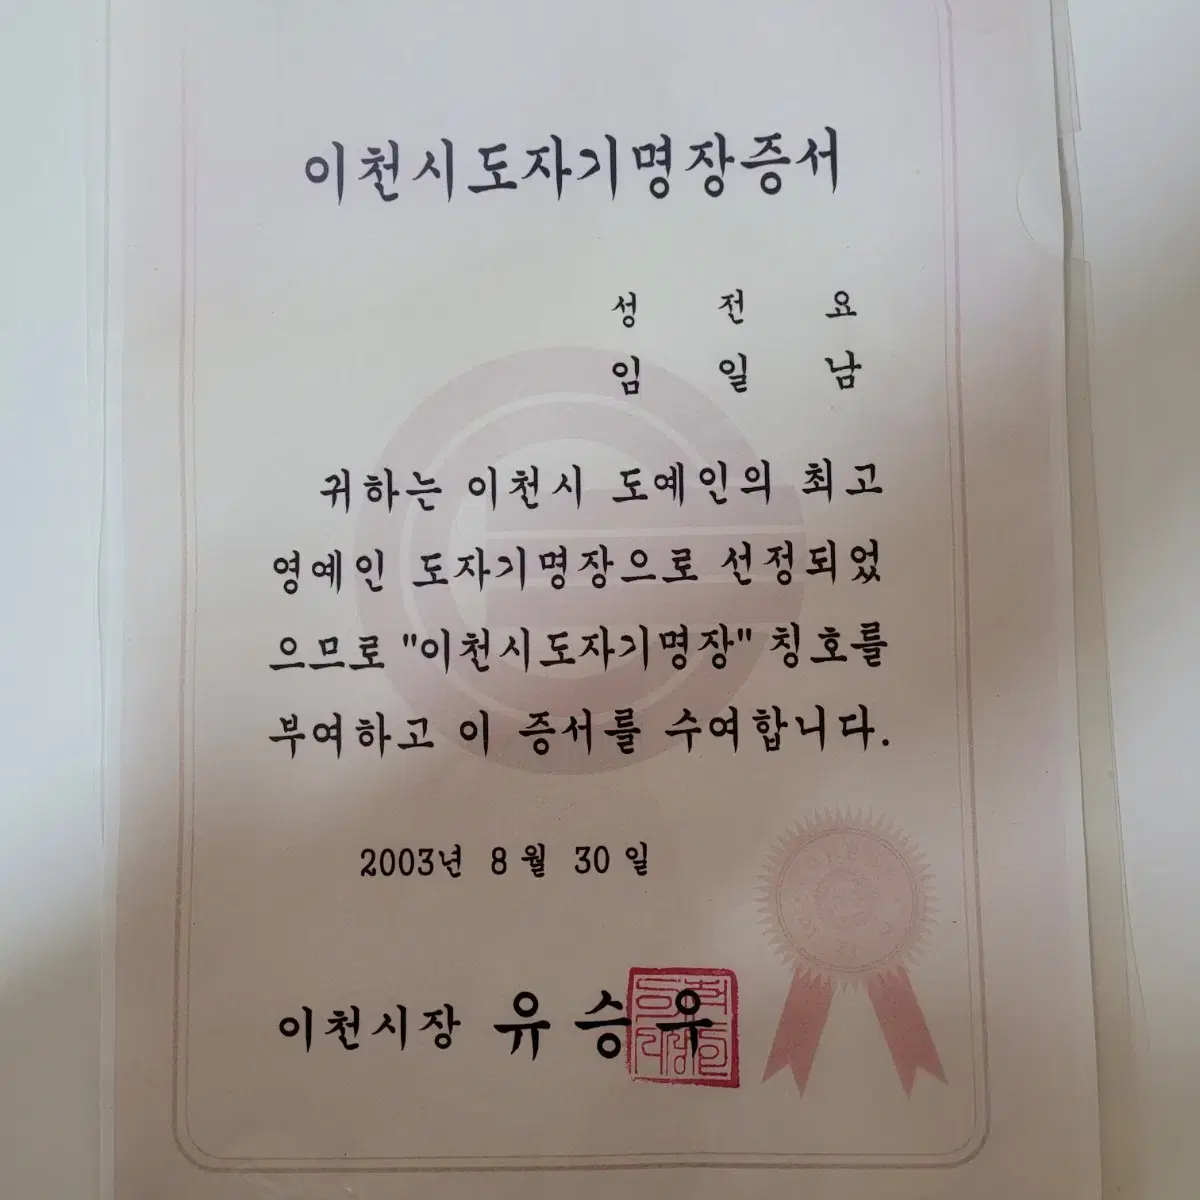 이천시도자기명장증서
성 전 요
임 일 남
귀하는 이천시 도예인의 최고
영예인 도자기명장으로 선정되었
으므로 "이천시도자기명장" 칭호를
부여하고 이 증서를 수여합니다.
2003년 8월 30일
이천시장 유승우